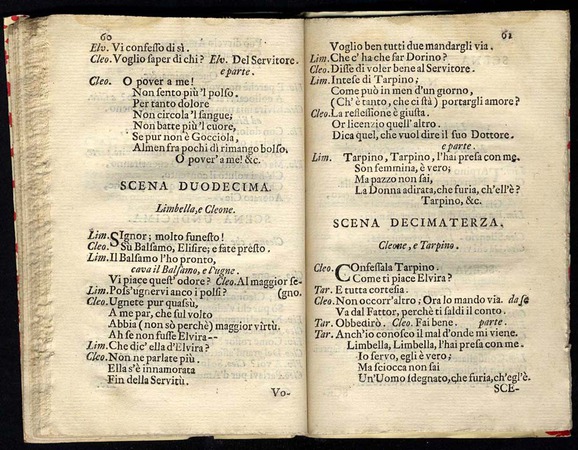 60
Elv. Vi confesso di sì.
Cleo. Voglio saper di chi? Elv. Del Servitore.
e parte.
Cleo. O pover a me!
Non sento più'l polso.
Per tanto dolore
Non circola'l sangue;
Non batte più'l cuore,
Se pur non è Gocciola,
Almen fra pochi dì rimango bolso.
O pover'a me! &c.
SCENA DUODECIMA.
Limbella, e Cleone.
Lim. SIgnor; molto funesto!
Cleo. Sù Balsamo, Elisire; e fate presto.
Lim. Il Balsamo l'ho pronto,
cava il Balsamo, e l'ugne.
Vi piace quest'odore? Cleo. Al maggior se-
Lim. Poss'ugnervi anco i polsi? (gno.
Cleo. Ugnete pur quassù,
A me par, che sul volto
Abbia (non sò perchè) maggior virtù.
Ah se non fusse Elvira--
Lim. Che dic' ella d'Elvira?
Cleo. Non ne parlate più.
Ella s'è innamorata
Fin della Servitù.
Vo-
61
Voglio ben tutti due mandargli via.
Lim. Che c'ha che far Dorino?
Cleo. Disse di voler bene al Servitore.
Lim. Intese di Tarpino;
Come può in men d'un giorno,
(Ch'è tanto, che ci stà) portargli amore?
Cleo. La reflessione è giusta.
Or licenzio quell'altro.
Dica quel, che vuol dire il suo Dottore.
e parte.
Lim. Tarpino, Tarpino, l'hai presa con me.
Son femmina, è vero;
Ma pazzo non sai,
La Donna adirata, che furia, ch'ell'è?
Tarpino, &c.
SCENA DECIMATERZA.
Cleone, e Tarpino.
Cleo. COnfessala Tarpino.
Come ti piace Elvira?
Tar. E tutta cortesia.
Cleo. Non occorr'altro; Ora lo mando via. da se
Va dal Fattor, perchè ti saldi il conto.
Tar. Obbedirò. Cleo. Fai bene. parte.
Tar. Anch'io conosco il mal d'onde mi viene.
Limbella, Limbella, l'hai presa con me.
Io servo, egli è vero;
Ma sciocca non sai
Un'Uomo sdegnato, che furia, ch'egl'è.
SCE-